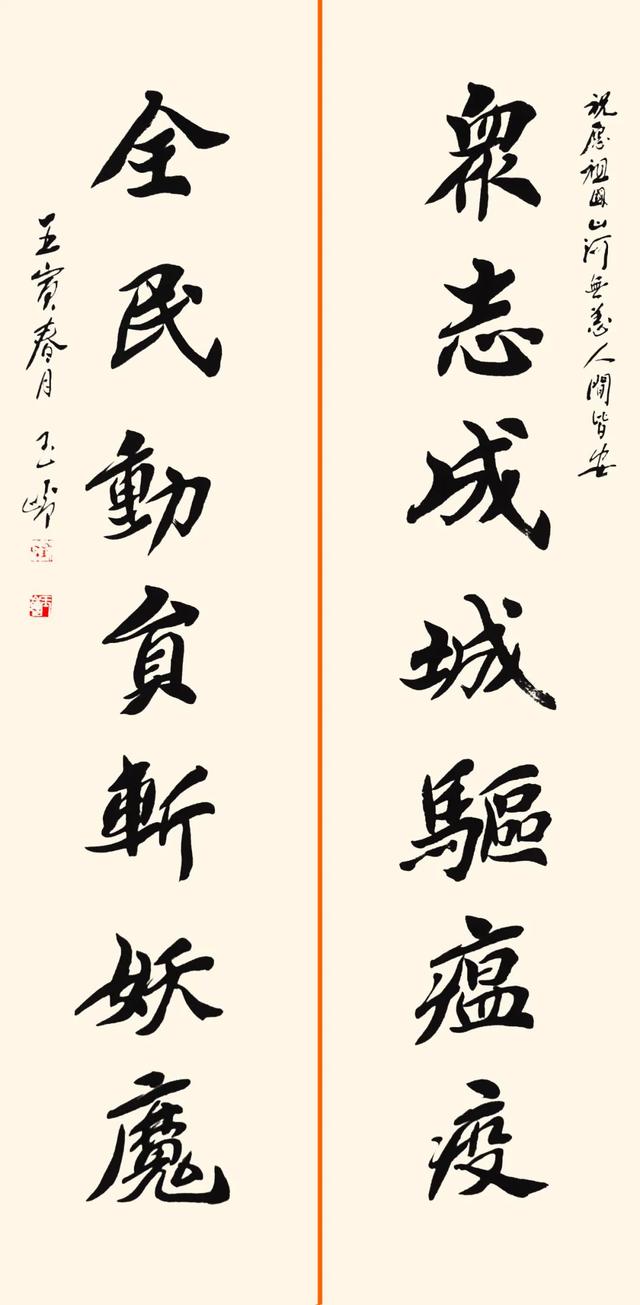 祝愿祖國山河無恙人間皆安
衆志成城驅瘟疫
全民動員斬妖魔
壬寅春月